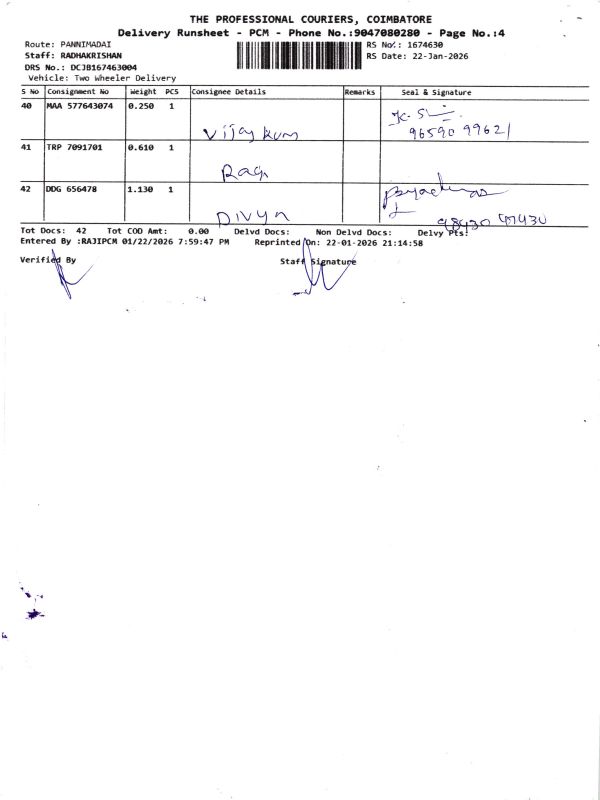 THE PROFESSIONAL COURIERS, COIMBATORE
Delivery Runsheet - PCM - Phone No.:9047080280 - Page No.:4
Route: PANNIMADAI
RS No.: 1674630
Staff: RADHAKRISHAN
RS Date: 22-Jan-2026
DRS No.: DCJB167463004
Vehicle: Two Wheeler Delivery
S No Consignment No Weight PCS Consignee Details Remarks Seal & Signature
40 MAA 577643074 0.250 1
Vijay kum
96590 99621
41 TRP 7091701 0.610 1
42 DDG 656478 1.130 1
Divya
98430 47430
Tot Docs: 42 Tot COD Amt: 0.00 Delvd Docs: Non Delvd Docs: Delvy Pts:
Entered By :RAJIPCM 01/22/2026 7:59:47 PM Reprinted On: 22-01-2026 21:14:58
Verified By Staff Signature